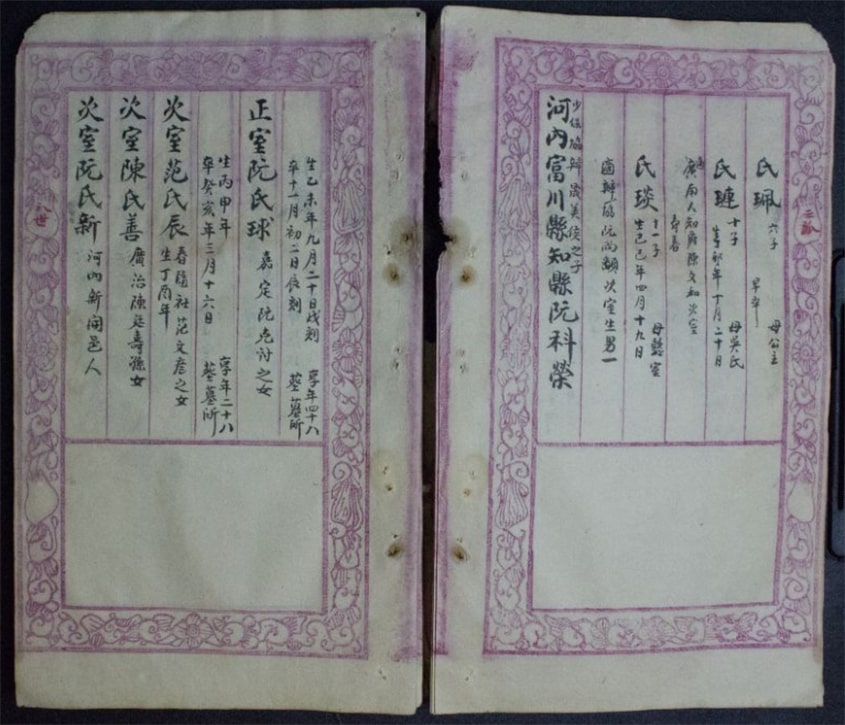 氏珮 六子 早卒 母公主
氏璉 十子 母吳氏
生辛卯年十月二十日
廣南人知府陳文和次室
壽春
氏琰 十一子 母懿室
生己巳年四月十九日
阮尚賴次室生男一
少保協辦晟美侯之子
河內富川縣知縣阮科榮
生乙未年九月二十日戌刻 享年四十八
卒十一月初二日辰刻 葬墓所
正室阮氏球 嘉定阮克討之女
生丙申年 享年二十八
卒癸亥年三月十六日 葬墓所
次室范氏辰 春臨社范文彥之女
生丁酉年
次室陳氏善 廣治陳廷壽孫女
次室阮氏新 河內新開邑人
八世